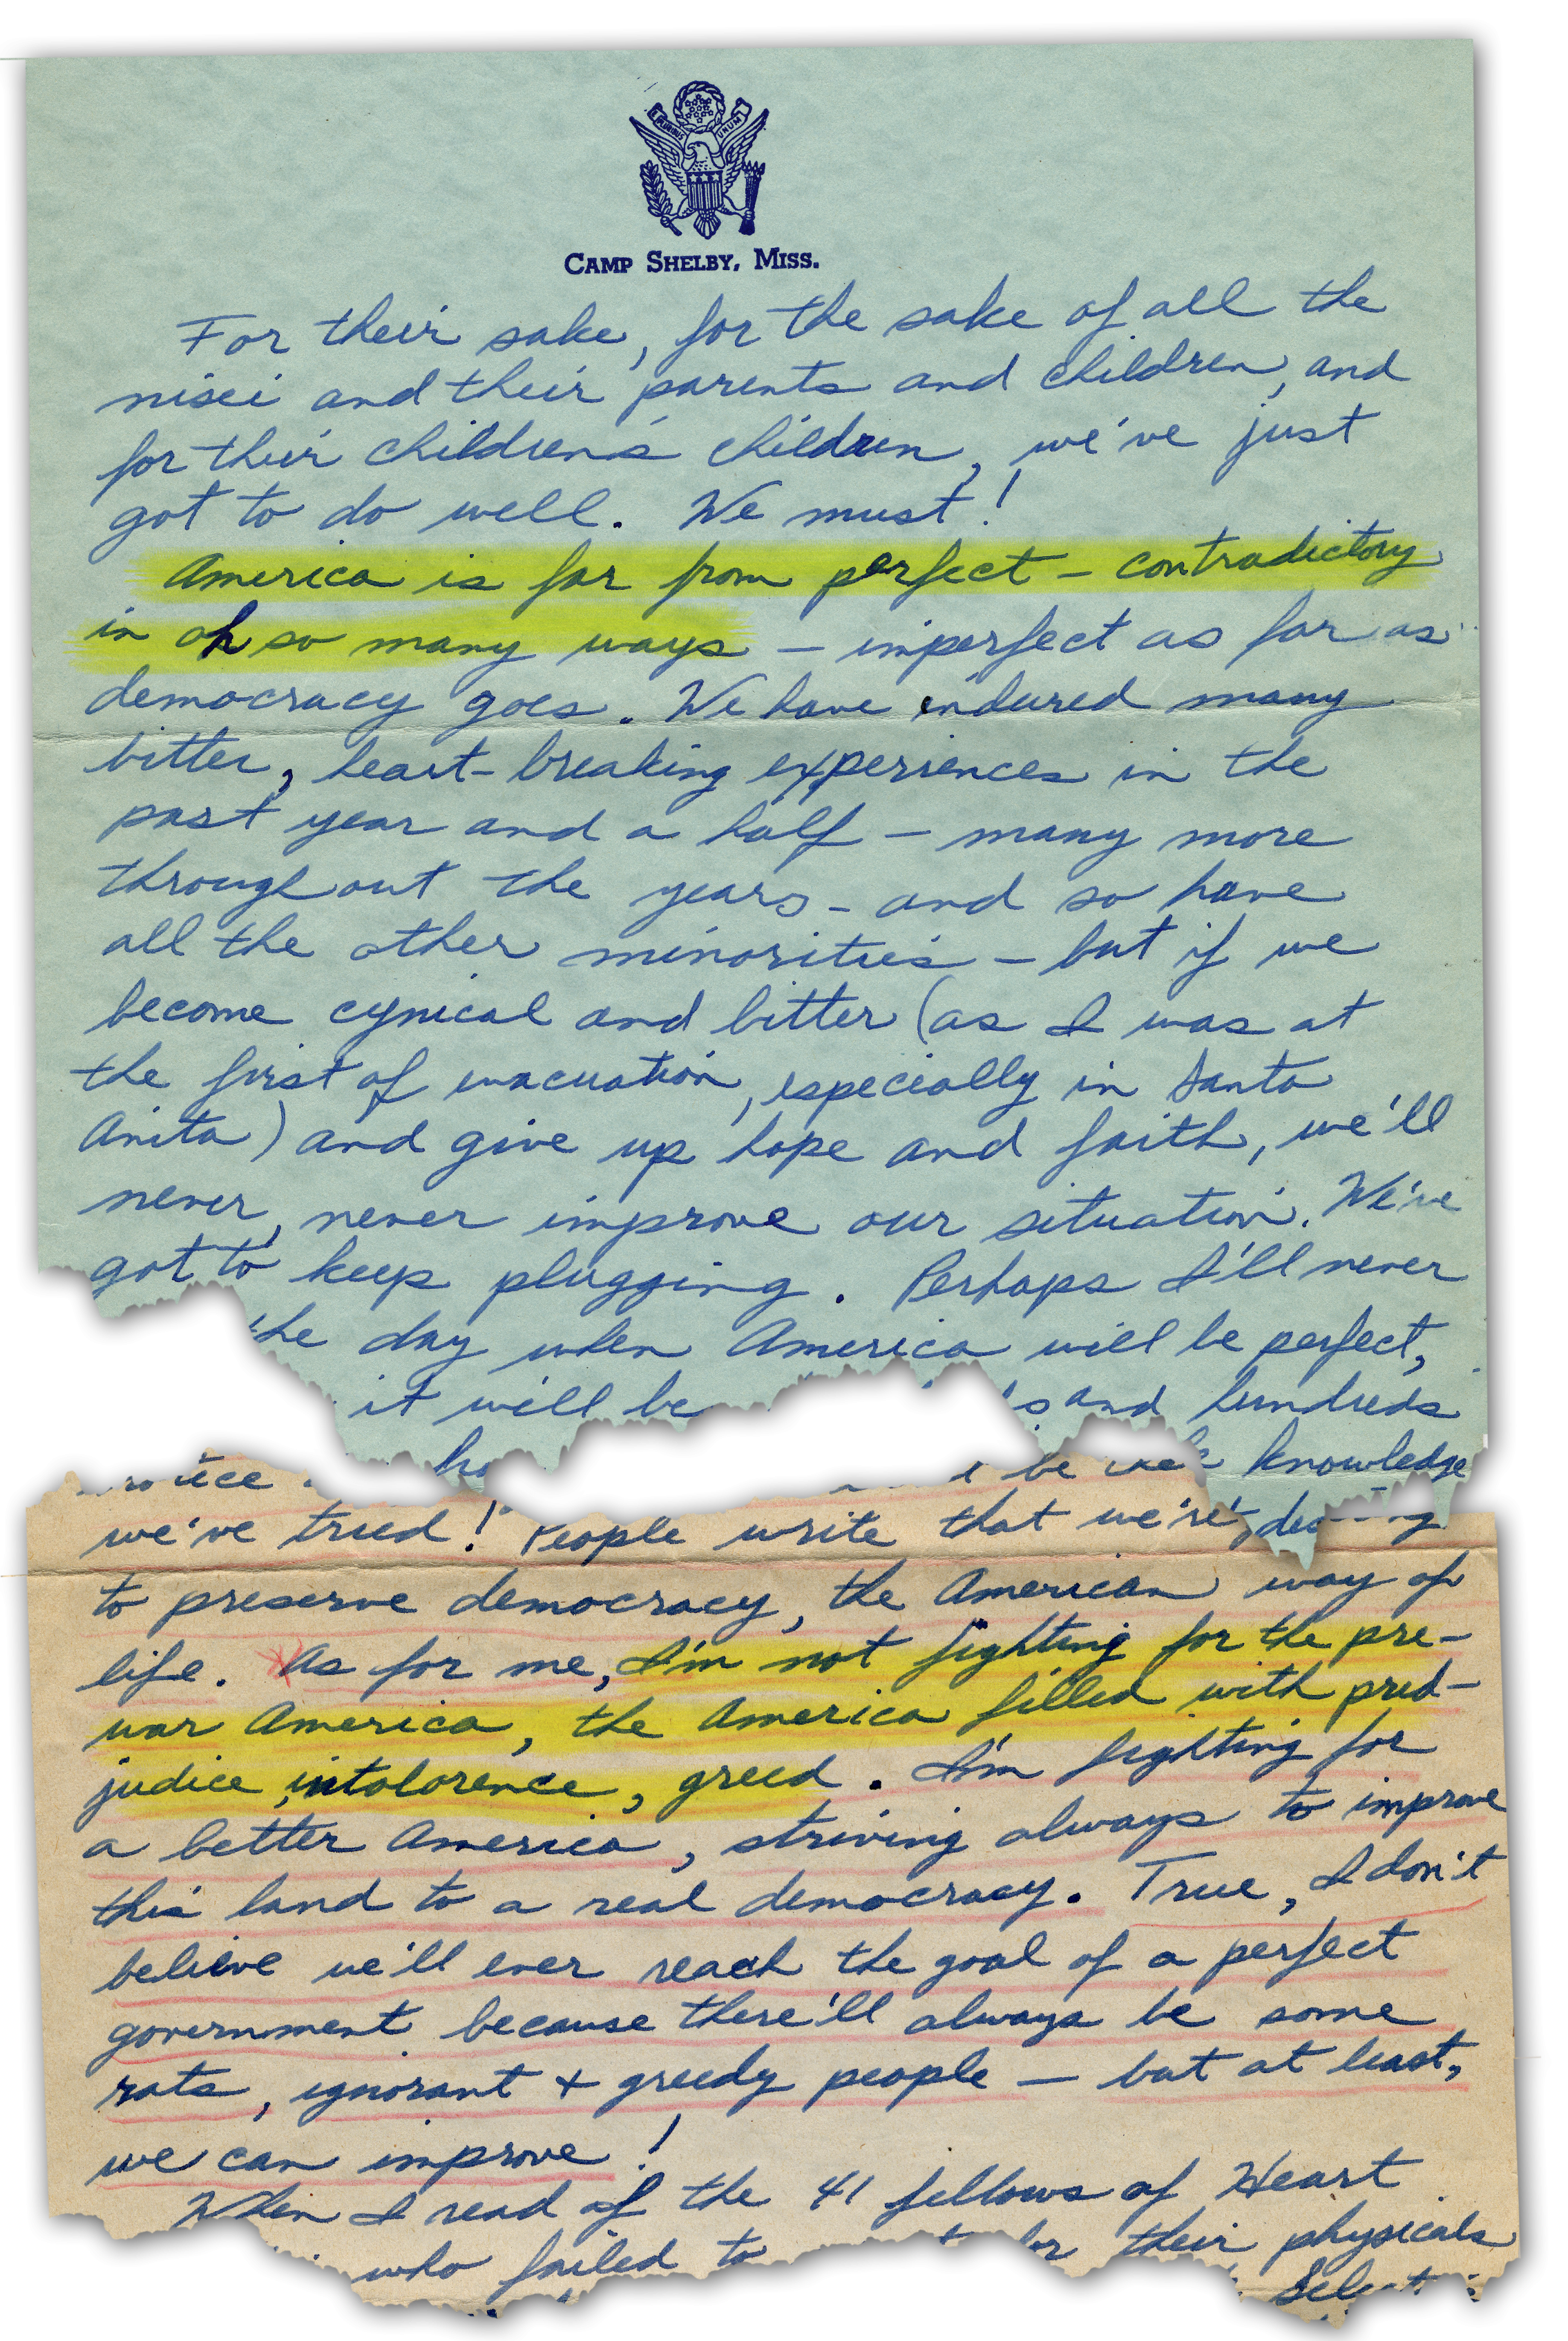 PLURIBUS UNUM
CAMP SHELBY, MISS.
For their sake, for the sake of all the
nisei and their parents and children, and
for their children's children, we've just
got to do well. We must!
America is far from perfect – contradictory
in oh so many ways – imperfect as far as
democracy goes. We have endured many
bitter, heart-breaking experiences in the
past year and a half – many more
throughout the years – and so have
all the other minorities – but if we
become cynical and bitter (as I was at
the first of evacuation, especially in Santa
Anita) and give up hope and faith, we'll
never, never improve our situation. We've
got to keep plugging. Perhaps I'll never
the day when America will be perfect,
it will be and hundreds
be knowledge
we've tried! People write that we're
to preserve democracy, the American way of
life. As for me, I'm not fighting for the pre-
war America, the America filled with pred-
judice, intolorence, greed. I'm fighting for
a better America, striving always to improve
this land to a real democracy. True, I don't
believe we'll ever reach the goal of a perfect
government because there'll always be some
rats, ignorant + greedy people – but at least,
we can improve!
When I read of the 41 fellows of Heart
who failed to for their physicals